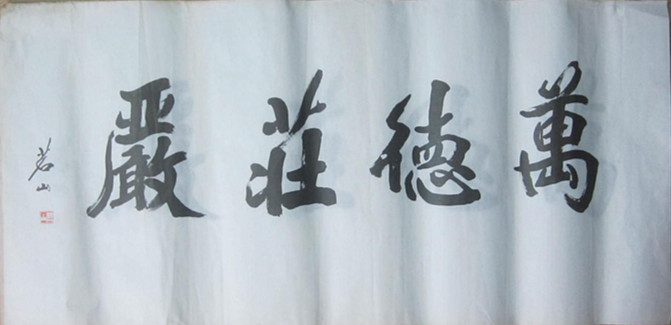 萬德莊嚴
茗山